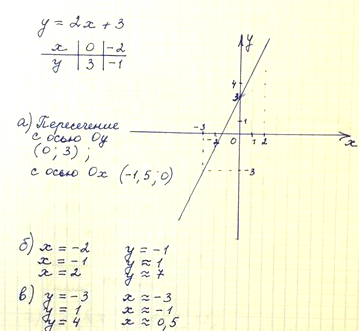 y = 2x + 3
x | 0 | -2
y | 3 | -1
а) Пересечение
с осью Оу
(0 ; 3) ;
с осью Ох (-1,5 ; 0)
y
4
3
1
-3 -2 0 1 2 x
-3
б) x = -2 y = -1
x = -1 y ≈ 1
x = 2 y ≈ 7
в) y = -3 x ≈ -3
y = 1 x ≈ -1
y = 4 x ≈ 0,5